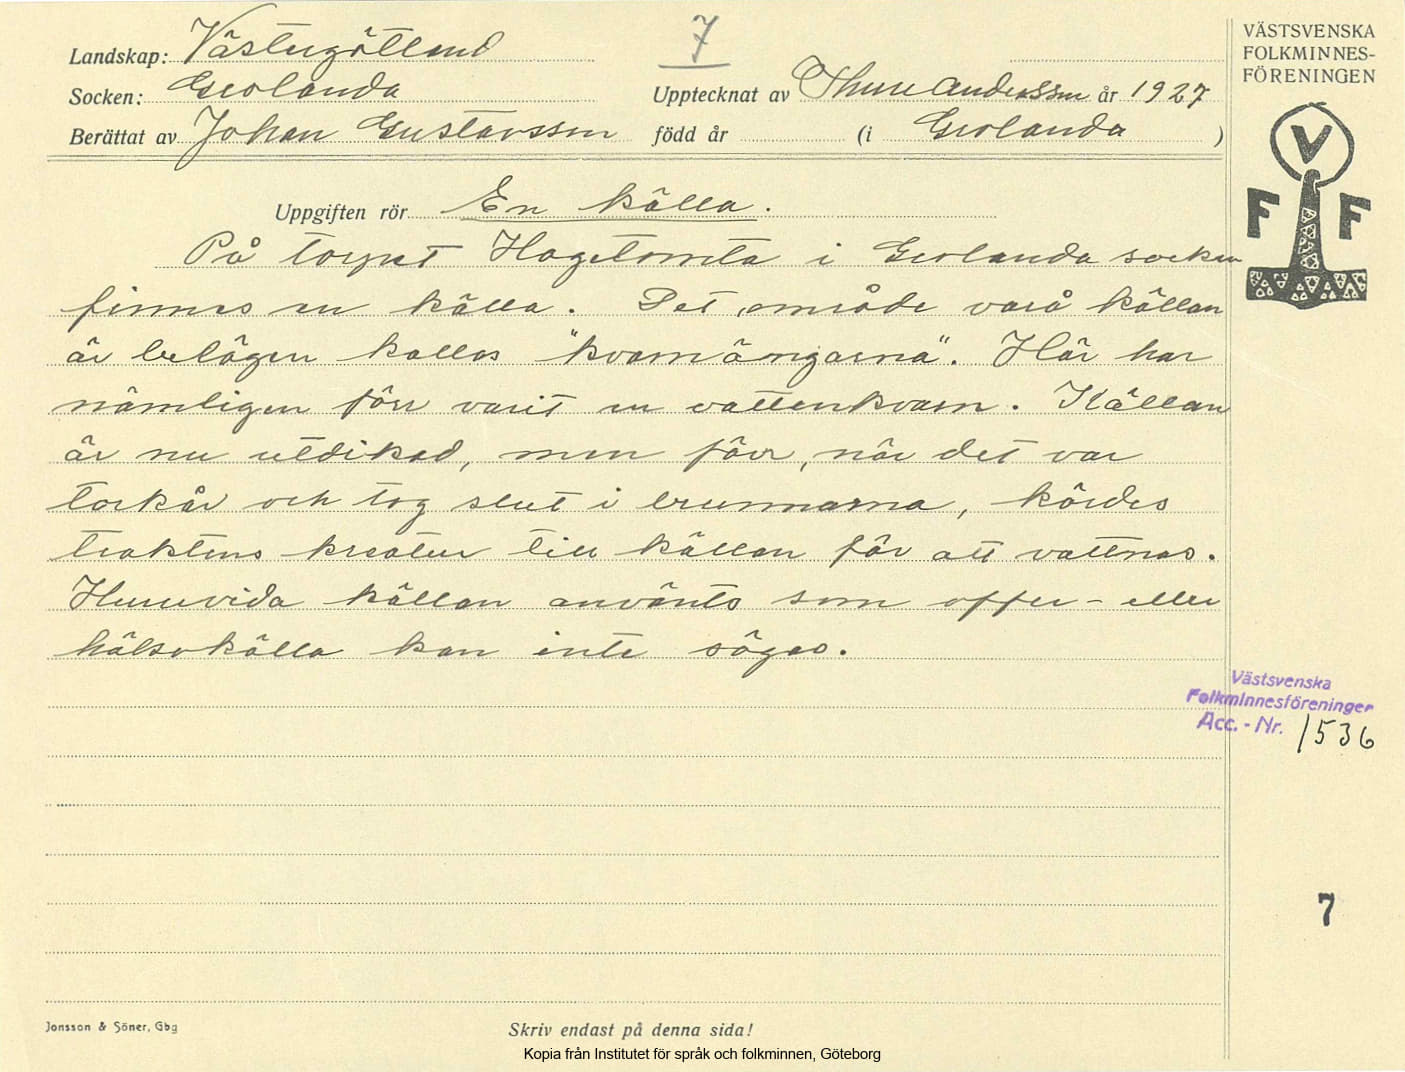 7
Landskap: Västergötland
Socken: Grolanda
Upptecknat av Thure Andersson år 1927
Berättat av Johan Gustavsson född år (i Grolanda )
VÄSTSVENSKA
FOLKMINNES-
FÖRENINGEN
V
F F
Uppgiften rör En källa.
På torpet Hagetomta i Grolanda socken
finnes en källa. Det område varå källan
är belägen kallas "kvarnängarna". Här har
nämligen förr varit en vattenkvarn. Källan
är nu utdikad, men förr, när det var
torkår och tog slut i brunnarna, kördes
traktens kreatur till källan för att vattnas.
Huruvida källan använts som offer- eller
hälsokälla kan inte sägas.
Västsvenska
Folkminnesföreningen
Acc. - Nr. 1536
7
Jonsson & Söner, Gbg
Skriv endast på denna sida!
Kopia från Institutet för språk och folkminnen, Göteborg